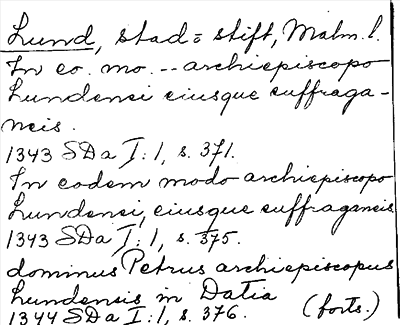 Lund, stad = stift, Malm. l.
In eo. mo. -- archiepiscopo
Lundensi eiusque suffraga-
neis.
1343 SDa I:1, s. 371.
In eodem modo archiepiscopo
Lundensi, eiusque suffraganeis
1343 SDa I:1, s. 375.
dominus Petrus archiepiscopus
Lundensis in Datia
1344 SDa I:1, s. 376. (forts.)